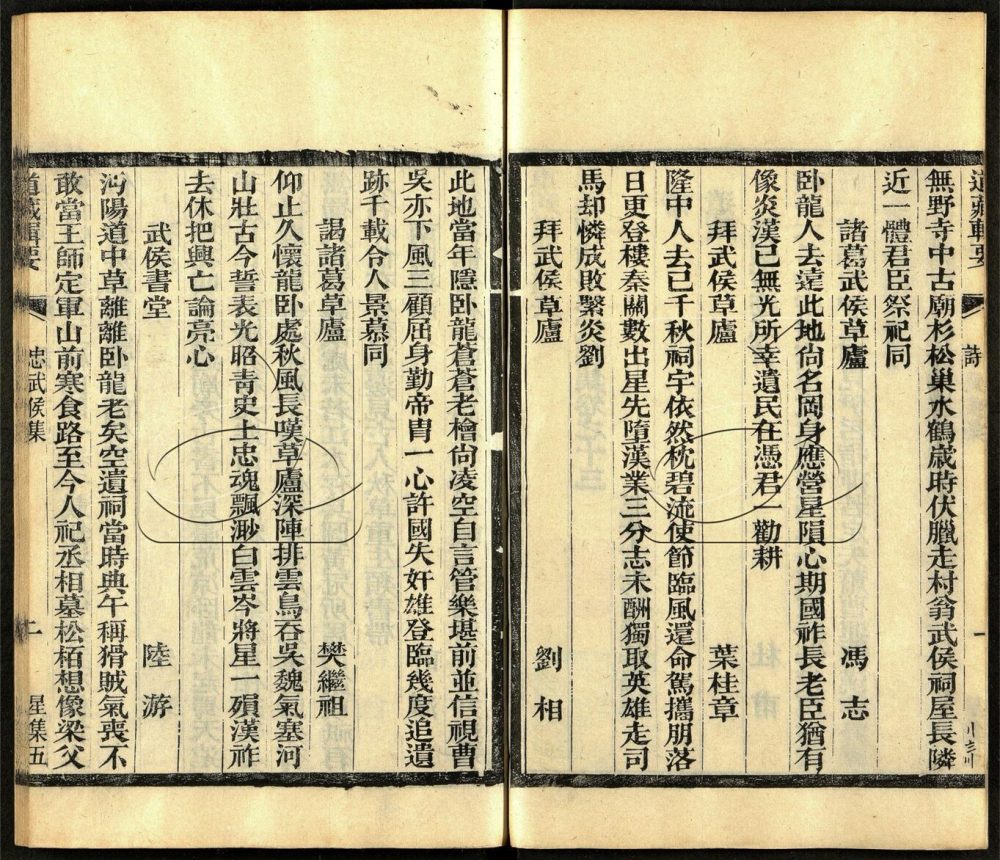 道藏輯要
詩
無野寺中古廟杉松巢水鶴歲時伏臘走村翁武侯祠屋長隣
近一體君臣祭祀同
諸葛武侯草廬 馮志
臥龍人去遠此地尙名岡身應營星隕心期國祚長老臣猶有
像炎漢已無光所幸遺民在憑君一勸耕
拜武侯草廬 葉桂章
隆中人去已千秋祠宇依然枕碧流使節臨風還命駕攜朋落
日更登樓秦關數出星先墮漢業三分志未酬獨取英雄走司
馬却憐成敗繫炎劉
拜武侯草廬 劉相
此地當年隱臥龍蒼蒼老檜尙凌空自言管樂堪前並信視曹
吳亦下風三顧屈身勤帝胄一心許國失奸雄登臨幾度追遺
跡千載令人景慕同
謁諸葛草廬 樊繼祖
仰止久懷龍臥處秋風長嘆草廬深陣排雲鳥吞吳魏氣塞河
山壯古今誓表光昭青史上忠魂飄渺白雲岑將星一殞漢祚
去休把興亡論亮心
武侯書堂 陸游
沔陽道中草離離臥龍老矣空遺祠當時典午稱猾賊氣喪不
敢當王師定軍山前寒食路至今人祀丞相墓松栢想像梁父
道藏輯要
忠武侯集
二
星集五